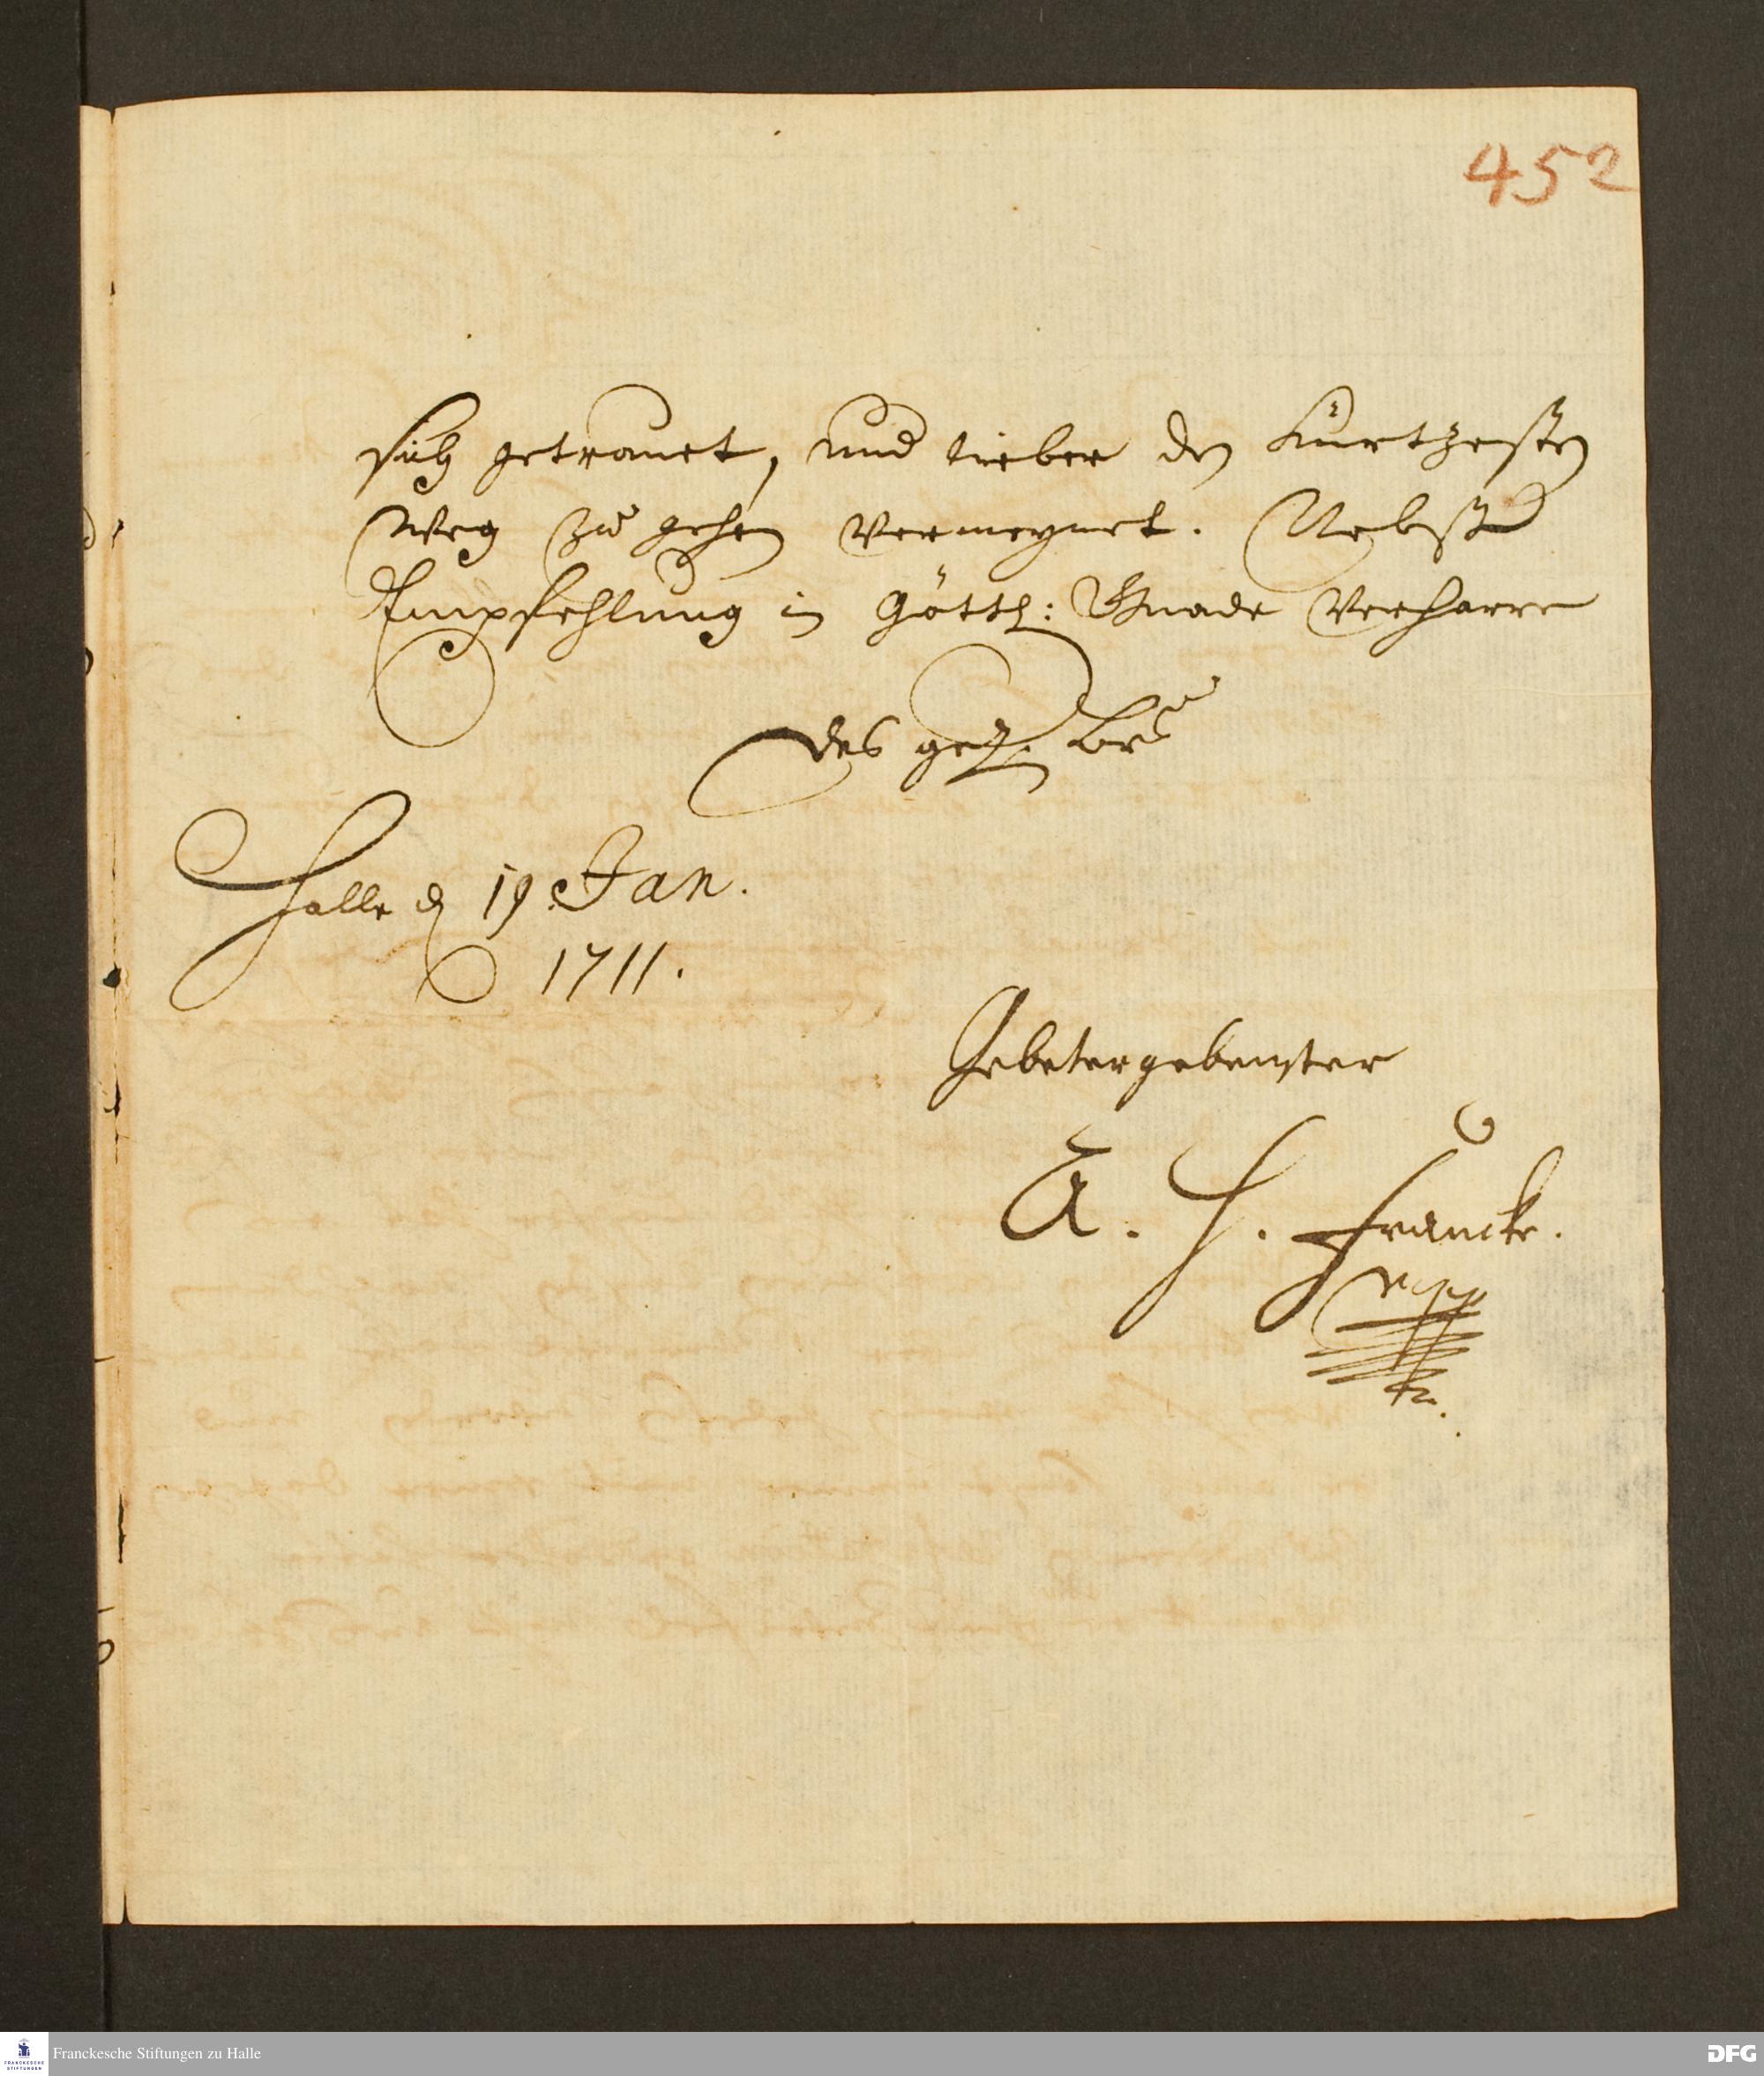 452
sich getrauet, und lieber den Kürtzesten
Weg zu gehen vermeynet. Nebst
Empfehlung in Göttl: Gnade verharre
des gel. Brs
Halle d 19 Jan.
1711.
Gebetergebenster
A. H. Francke.
Franckesche Stiftungen zu Halle
FRANCKESCHE
STIFTUNGEN
DFG